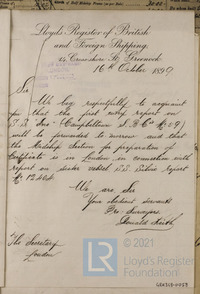 Lloyd's Register of British
and Foreign Shipping.
14 Crescent St Greenock
16th October 1899
Sir
We beg respectfully to acquaint
you that the first entry report on
S.S. Sus "Campbeltown
will be forwarded tomorrow and that
the Midship Section for preparation of
Certificate is in London in connection with
report on sister vessel S.S.
We are Sir
Your obedient Servants
The Surveyors
The Secretary
London
© 2021
Lloyd's Register
Foundation